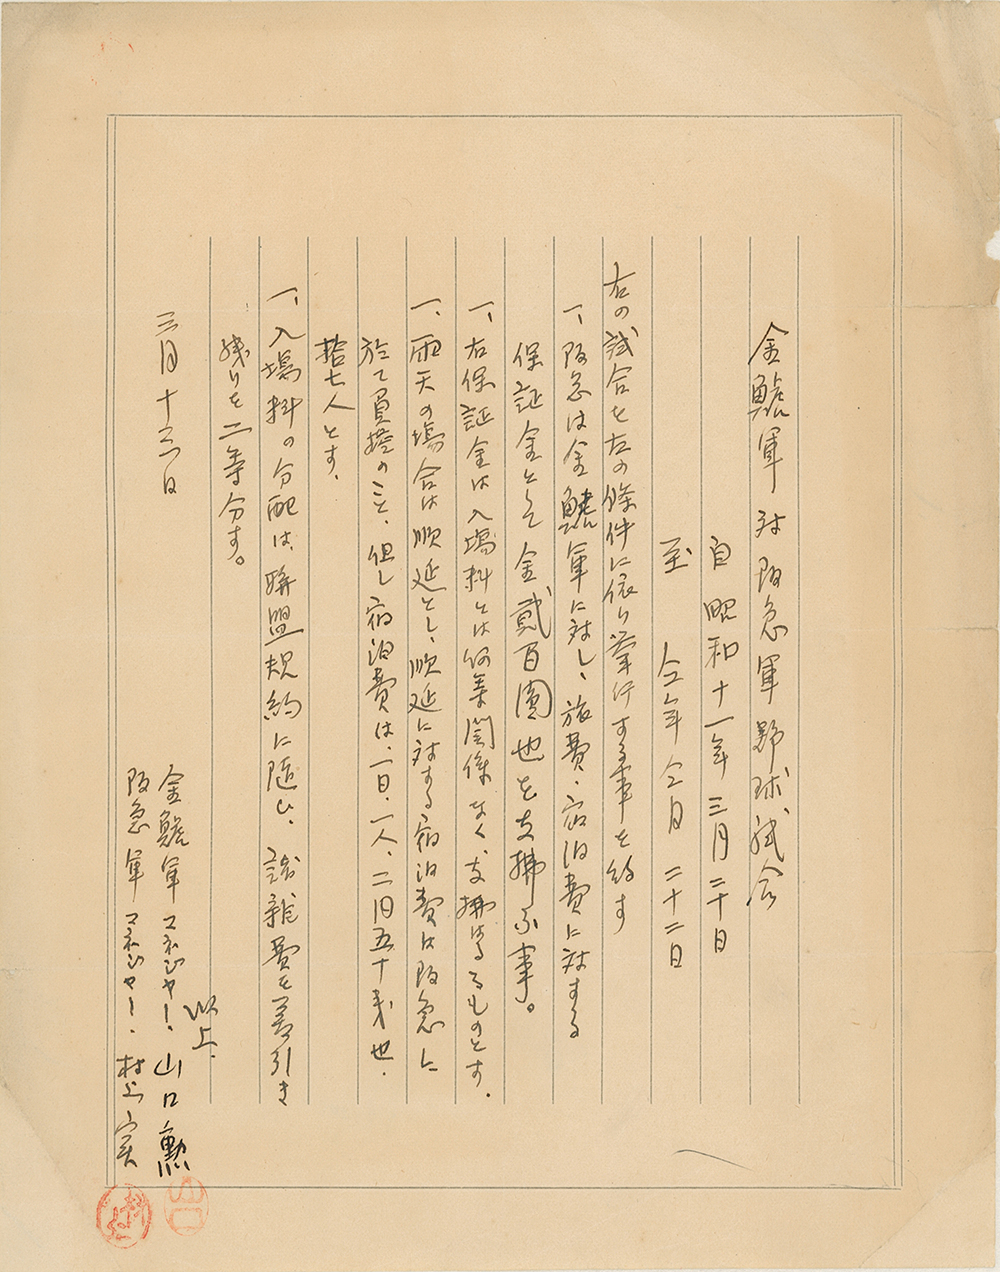 金鯱軍対阪急軍野球試合
自 昭和十一年三月二十日
至 仝年仝月二十二日
右の試合を左の條件に依り挙行する事を約す
一、阪急は金鯱軍に対し、旅費、宿泊費に対する
保証金として金貳百圓也を支拂ふ事。
一、右保証金は入場料とは何等関係なく、支拂はるゝものとす。
一、雨天の場合は順延とし、順延に対する宿泊費は阪急に
於て負擔のこと、但し宿泊費は、一日、一人、二円五十戋也.
拾七人とす、
一、入場料の分配は、聯盟規約に随ひ、諸雑費を差引き
残りを二等分す。
以上.
三月十三日
金鯱軍マネジャー、山口勲
阪急軍マネジャー、村上実
山口
村上